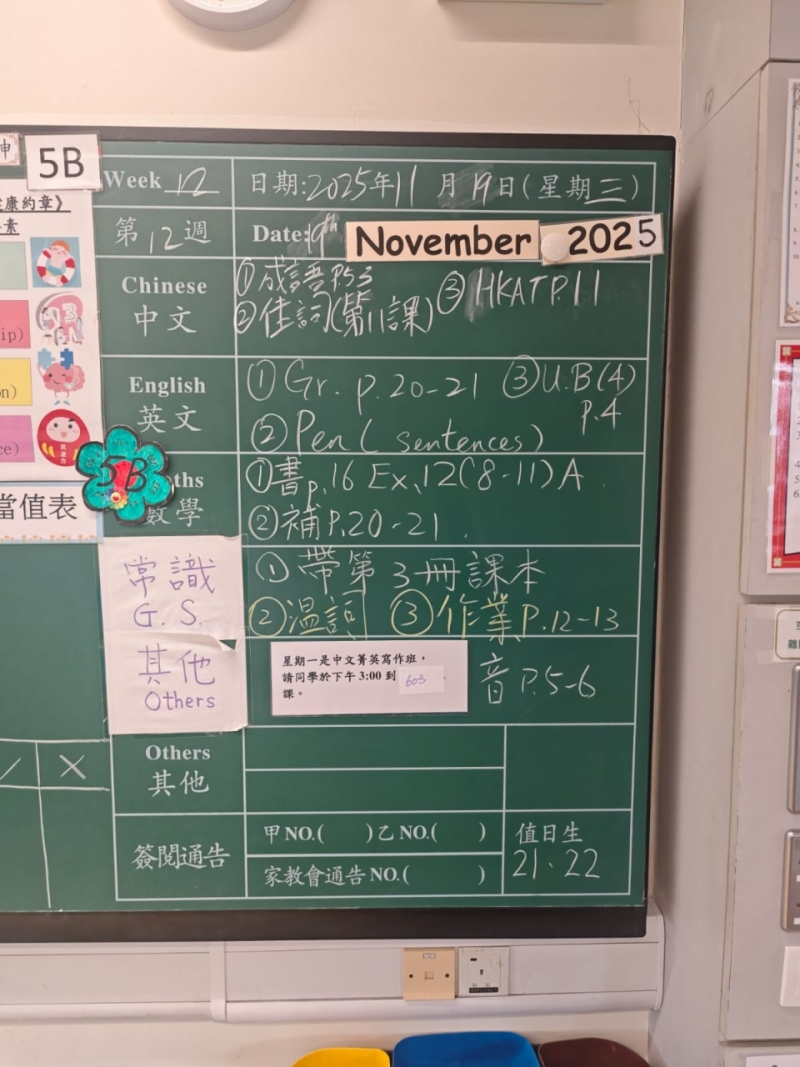 5B
Week 12
日期:2025年11月19日(星期三)
第12週
Date:19th November 2025
Chinese
中文
①成語P.53
③HKAT P.11
②佳詞(第11課)
English
英文
①Gr. p.20-21
③U.B(4)
p.4
②Pen(sentences)
5B
數學
①書p.16 Ex.12(8-11)A
②補P.20-21.
當值表
常識
G.S.
①帶第3冊課本
②溫詞
③作業P.12-13
其他
Others
星期一是中文菁英寫作班，
請同學於下午3:00到 603
課。
音P.5-6
Others
其他
簽閱通告
甲NO.( )乙NO.( )
家教會通告NO.( )
值日生
21、22